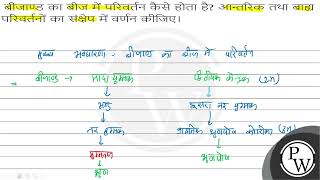 बीजाण्ड का बीज में परिवर्तन कैसे होता है? आन्तरिक तथा बाह्य
परिवर्तनों का संक्षेप में वर्णन कीजिए।
मुख्य अवधारणा: बीजाण्ड का बीज में परिवर्तन
बीजाण्ड → मादा युग्मक द्वितीयक केन्द्रक (2n)
अण्ड दूसरा नर युग्मक
नर युग्मक प्राथमिक भ्रूणपोष कोशिका (3n)
युग्मनज भ्रूणपोष
भ्रूण
PW